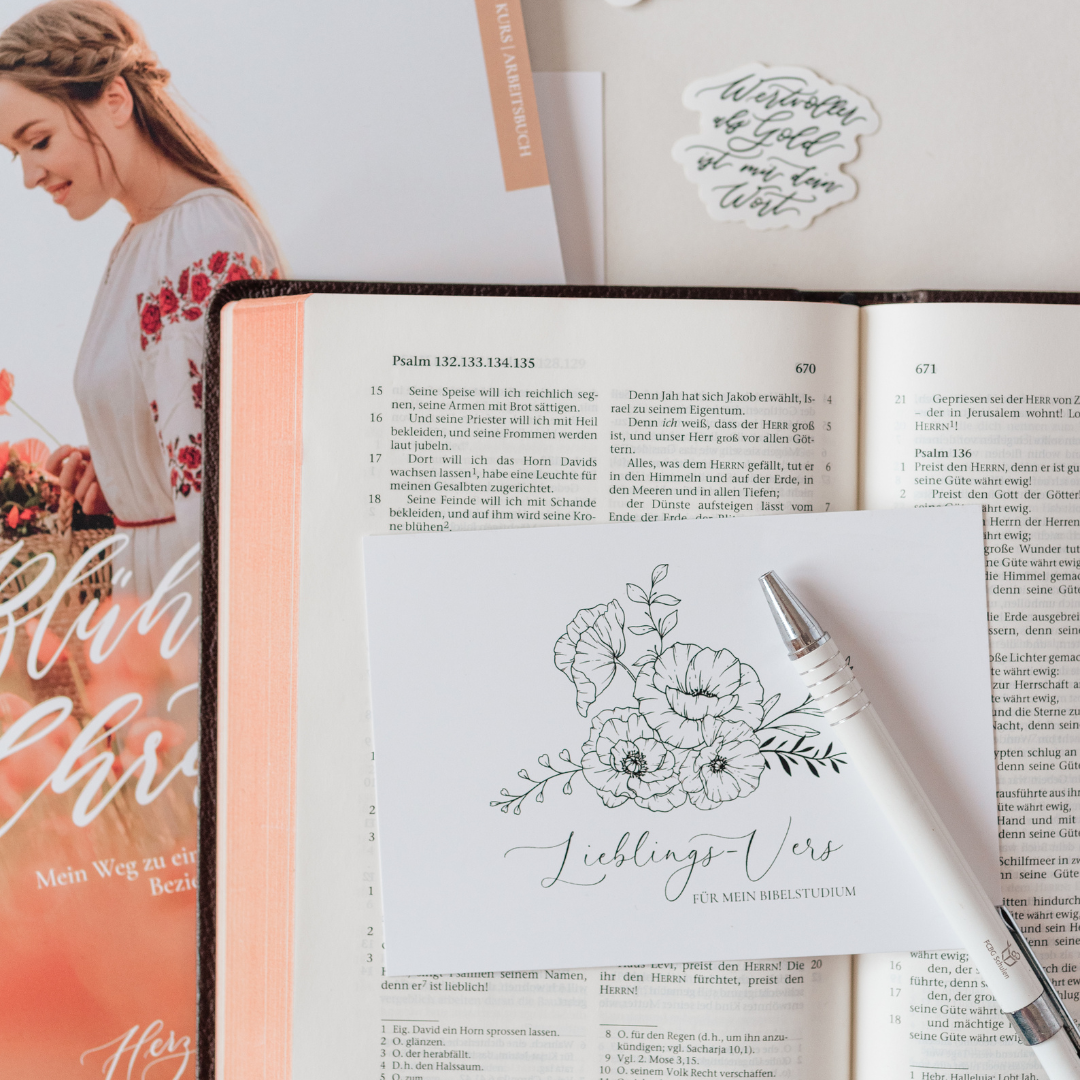 KURS | ARBEITSBUCH
Wertvoller
als Gold
ist mir dein
Wort
Blüh
Mein Weg zu ein
Bezie
Herz
Psalm 132.133.134.135
670
15 Seine Speise will ich reichlich seg-
nen, seine Armen mit Brot sättigen.
16 Und seine Priester will ich mit Heil
bekleiden, und seine Frommen werden
laut jubeln.
17 Dort will ich das Horn Davids
wachsen lassen¹, habe eine Leuchte für
meinen Gesalbten zugerichtet.
18 Seine Feinde will ich mit Schande
bekleiden, und auf ihm wird seine Kro-
ne blühen².
1
2
3
1
2
3
Psalmen seinem Namen,
denn er⁷ ist lieblich!
1 Eig. David ein Horn sprossen lassen.
2 O. glänzen.
3 O. der herabfällt.
4 D.h. den Halssaum.
5 O. zum
Denn Jah hat sich Jakob erwählt, Is- 4
rael zu seinem Eigentum.
Denn ich weiß, dass der HERR groß 5
ist, und unser Herr groß vor allen Göt-
tern.
Alles, was dem HERRN gefällt, tut er 6
in den Himmeln und auf der Erde, in
den Meeren und in allen Tiefen;
der Dünste aufsteigen lässt vom 7
Ende der Erde, der
Haus Levi, preist den HERRN! Die 20
ihr den HERRN fürchtet, preist den
HERRN!
8 O. für den Regen (d.h., um ihn anzu-
kündigen; vgl. Sacharja 10,1).
9 Vgl. 2. Mose 3,15.
10 O. seinem Volk Recht verschaffen.
Lieblings-Vers
FÜR MEIN BIBELSTUDIUM
FCBG Schulen
671
21 Gepriesen sei der HERR von Z
– der in Jerusalem wohnt! Lo
HERRN¹!
Psalm 136
1 Preist den HERRN, denn er ist gu
seine Güte währt ewig!
2 Preist den Gott der Götter
seine Güte währt ewig.
Herrn der Herren
ährt ewig;
große Wunder tut
ne Güte währt ewig
die Himmel gemac
denn seine Güte
die Erde ausgebrei
ssern, denn sein
oße Lichter gemac
te währt ewig:
zur Herrschaft a
te währt ewig,
und die Sterne zu
Nacht, denn sein
ypten schlug an
denn seine Güte
rausführte aus ihr
üte währt ewig,
Hand und mit
denn seine Güte
Schilfmeer in zw
nn seine Güte
itten hindurch
üte währt ewig,
und sein He
denn seine
währt ewig;
16 den, der
führte, denn s
17 den, der gro
seine Güte währt
18 und mächtige
seine Güte währt ewig
1 Hebr. Halleluja: Lobt Jah.